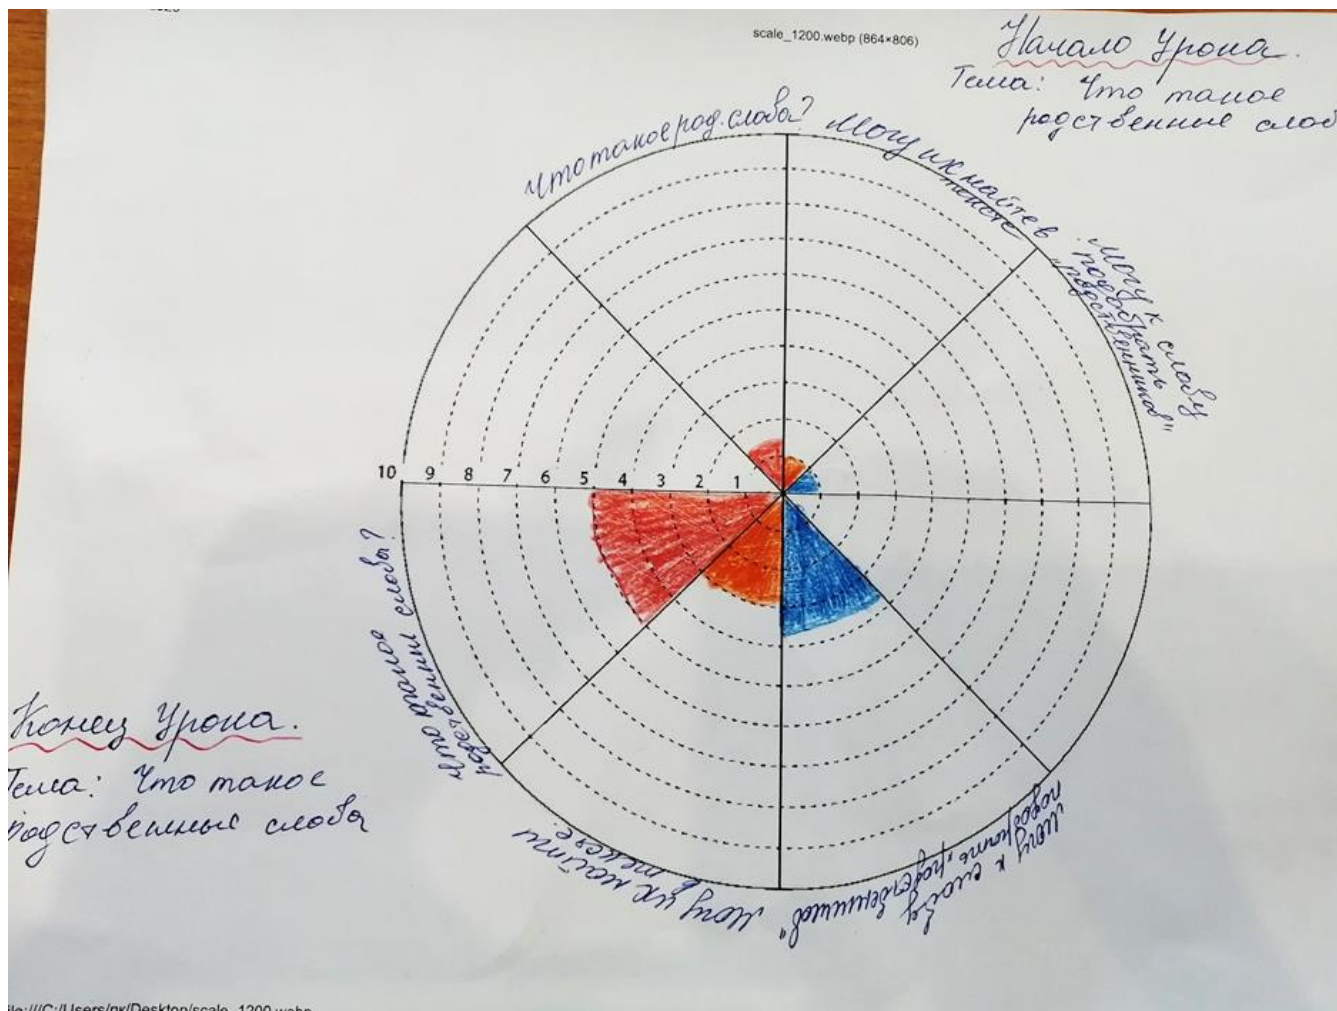 scale_1200.webp (864×806)
Начало Урока.
Тема: Что такое
родственные слов
Что такое род. слова?
Могу их найти в
тексте
Могу к слову
подобрать
"родственников"
10 9 8 7 6 5 4 3 2 1
Что такое
родственные слова?
Могу их найти
в тексте.
Могу к слову
подобрать "родственников"
Конец Урока.
Тема: Что такое
родственные слова
file:///C:/Users/пк/Desktop/scale_1200.webp